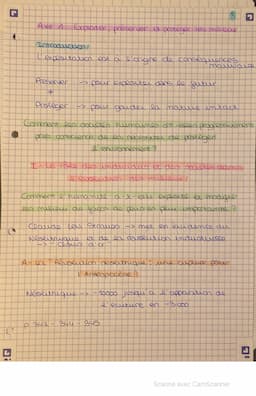 Axe 1 : Exploiter, préserver et protéger des milieux
Introduction
L'exploitation est à l'origine de conséquences mauvaises
Préserver → pour exploiter dans le futur
+
Protéger → pour garder la nature intact
Comment les sociétés humaines ont-elles progressivement
pris conscience de la nécessité de protéger
l'environnement ?
I - Le rôle des individus et des sociétés dans
l'évolution des milieux
Comment l'humanité a-t-elle exploité et modifié
les milieux de façon de plus en plus importante ?
→ mise en évidence du
Néolithique et de la révolution industrielle
A - La "Révolution néolithique", une rupture pour
l'Anthropocène ?
Néolithique → -10000 jusqu'à l'apparition de
l'écriture en -3000
p 343 - 344 - 345
Scanné avec CamScanner